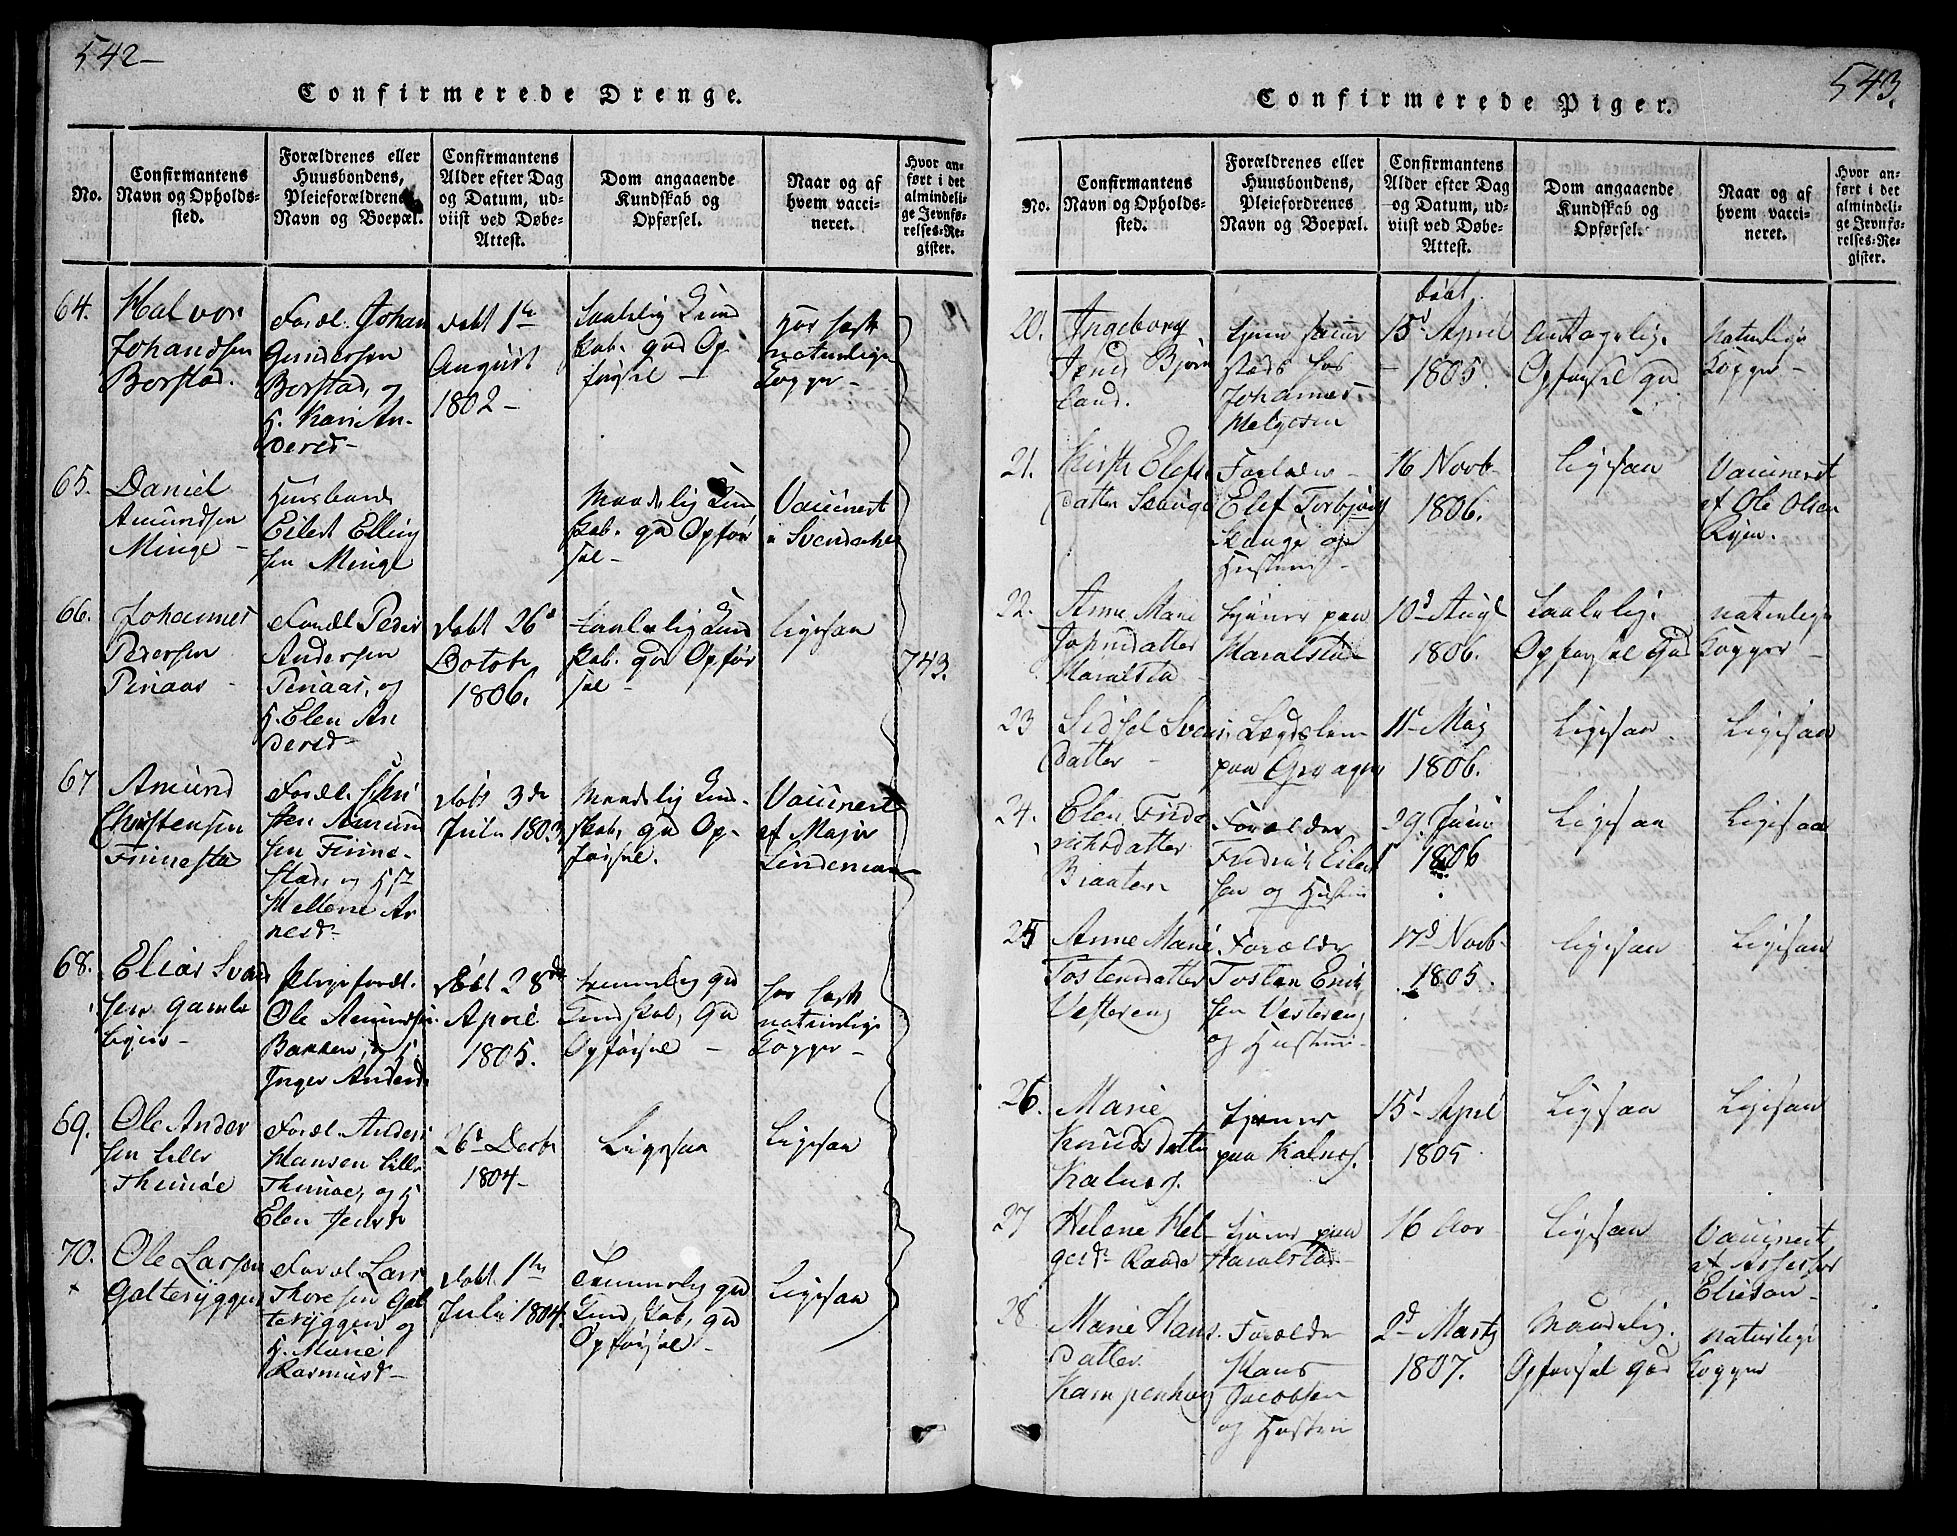 542
Confirmerede Drenge.
No.
Confirmantens
Navn og Opholds-
sted.
Forældrenes eller
Huusbondens,
Pleieforældrenes
Navn og Boepæl.
Confirmantens
Alder efter Dag
og Datum, ud-
viist ved Døbe-
Attest.
Dom angaaende
Kundskab og
Opførsel.
Naar og af
hvem vacci-
neret.
Hvor an-
ført i det
almindeli-
ge Jevnfø-
relses-Re-
gister.
64.
Halvor
Johandsen
Borstad.
Foræl. Johan
Gundersen
Borstad, og
H. Kari An-
dersd
døbt 1te
August
1802
Taalelig Kund
skab. god Op
førsel
har havt
naturlige
Kopper
65.
Daniel
Amundsen
Minge
Huusbond
Eilert Elling
sen Minge
Maadelig Kund
skab. god Opfør
sel
Vaccineret
i Svendahl
66.
Johannes
Pedersen
Penaas
Foræl. Peder
Andersen
Penaas, og
H. Elen An
dersd
døbt 26d
Octobr
1806.
Taalelig Kund
skab. god Opfør
sel
Ligesaa
743.
67
Amund
Christensen
Finnestad
Foræl. Chri
sten Amund
sen Finne-
stad, og Hst
Hellene Ar
nesd
døbt 3de
Julii 1803
Maadelig Kund-
skab, god Op-
førsel.
Vaccineret
af Major
Lindeman
68.
Elias Svend
sen Gamle
Pleieforæl.
Ole Amundsen
Bakken, og H.
Inger Andersd
døbt 28de
April
1805.
temmelig god
Kundskab, god
Opførsel
har havt
naturlige
Kopper
69.
Ole Ander
sen Lille
Thunøe
Foræl Anders
Hansen Lille
Thunøe, og H
Elen Jensd
26d Decbr
1804
Ligesaa
Ligesaa
70.
Ole Larsen
Galterÿggen
Foræl Lars
Thoresen Gal
terÿggen og
H. Marie
Rasmusd
døbt 1te
Julii 1804.
Temmelig god
Kundskab, god
Opførsel
Ligesaa
543.
Confirmerede Piger.
No.
Confirmantens
Navn og Opholds-
sted.
Forældrenes eller
Huusbondens,
Pleiefordrenes
Navn og Boepæl.
Confirmantens
Alder efter Dag
og Datum, ud-
viist ved Døbe-
Attest.
Dom angaaende
Kundskab og
Opførsel.
Naar og af
hvem vacci-
neret.
Hvor an-
ført i det
almindeli-
ge Jevnfø-
relses-Re-
gister.
20.
Ingeborg
Jensd Bjørn
land.
tjener samme
steds hos
Johannes
Helgesen
døbt
15d April
1805.
Antagelig.
Opførsel god
Naturlige
Kopper
21.
Kirsti Elefs
datter Skauge
Forældre
Elef Torbjørns
Skauge og
Hustru
16 Novb
1806.
Ligesaa
Vaccineret
af Ole Olsen
Ryen.
22.
Anne Marie
Johnsdatter
Haralstad
tjener paa
Haralstad
10d Augt
1806.
Taalelig.
Opførsel God
naturlige
Kopper
23
Sidsel Svens
datter
Lægdslem
paa
11t Maj
1806.
Ligesaa
Ligesaa
24.
Elen Fride
richsdatter
Braaten
Forældre
Fredrik Eilert
sen og Hustru
29. Juni
1806
Ligesaa
Ligesaa
25
Anne Marie
Tostensdatter
Vestereng
Forældre
Tosten Erik
sen Vestereng
og Hustru
17d Novb
1805.
Ligesaa
Ligesaa
26.
Marie
Knudsdatter
Kalnes.
tjener
paa Kalnes.
15d April
1805
Ligesaa
Ligesaa
27
Helene Hel
gesd Raade
tjener paa
Haralstad
16 Aar
Ligesaa
Vaccineret
af Assessor
Elieson
28
Marie Hans
datter
Kampenhoug
Forældre
Hans
Jacobsen
og Hustru
2d Marty
1807.
Maadelig.
Opførsel god
naturlige
Kopper